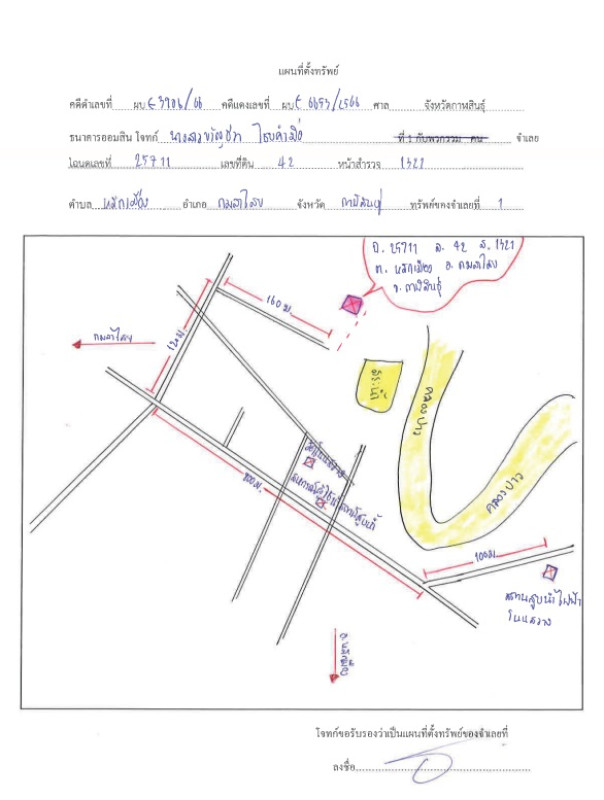 แผนที่ตั้งทรัพย์
คดีดำเลขที่ ผบE 3906/66 คดีแดงเลขที่ ผบE 6653/2566 ศาล จังหวัดกาฬสินธุ์
ธนาคารออมสิน โจทก์ นางสาว ที่ 1 กับพวกรวม คน จำเลย
โฉนดเลขที่ 25711 เลขที่ดิน 42 หน้าสำรวจ 1321
ตำบล หลักเมือง อำเภอ กมลาไสย จังหวัด กาฬสินธุ์ ทรัพย์ของจำเลยที่ 1
ฉ. 25711 ล. 42 ส. 1321
ต. หลักเมือง อ. กมลาไสย
จ. กาฬสินธุ์
160 ม.
120 ม.
กมลาไสย
สระน้ำ
คลองปาว
คลองปาว
800 ม.
100 ม
สถานีสูบน้ำไฟฟ้า
โนนสวาง
ต.หลักเมือง
โจทก์ขอรับรองว่าเป็นแผนที่ตั้งทรัพย์ของจำเลยที่
ลงชื่อ